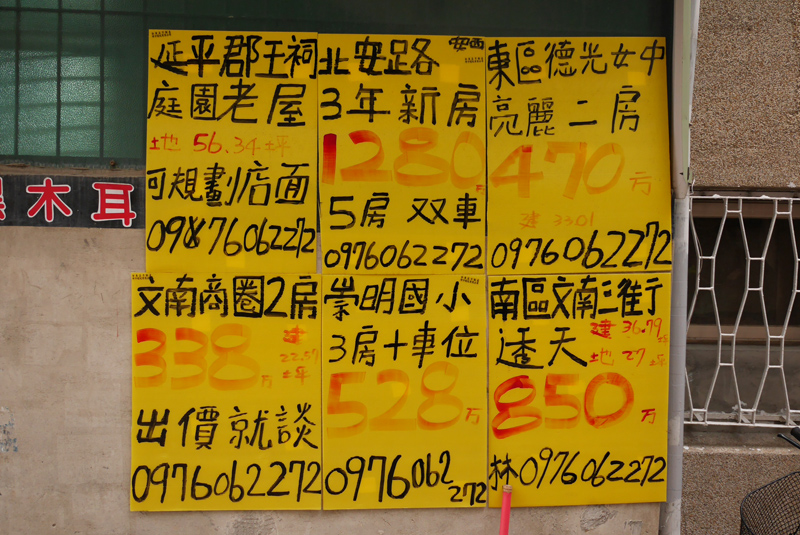 延平郡王祠
庭園老屋
土地 56.34坪
可規劃店面
09876062272
北安路 安西
3年新房
1280万
5房 双車
0976062272
東區德光女中
亮麗二房
470万
建 33.01
0976062272
木耳
文南商圈2房
338万
建 22.57坪
出價就談
0976062272
崇明國小
3房+車位
528万
0976062272
南區文南三街
透天
建 36.79坪
地 27坪
850万
林0976062272